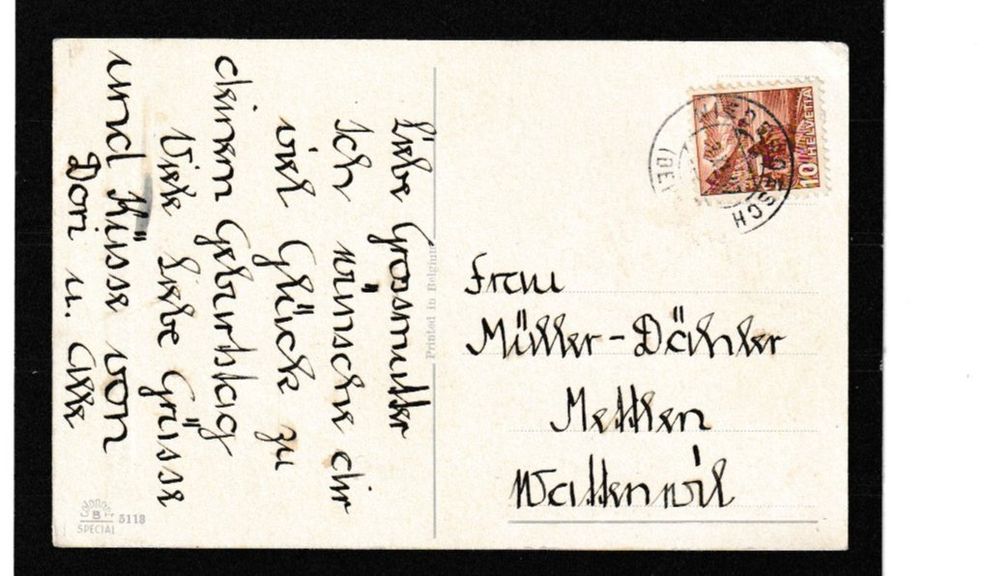 Liebe Grossmutter
Ich wünsche dir
viel Glück zu
deinem Geburtstag
Viele Liebe Grüsse
und Küsse von
Dori u. Alle
Printed in Belgium
Frau
Müller-Dähler
Mettlen
Wattenwil
10 HELVETIA
5113
SPECIAL